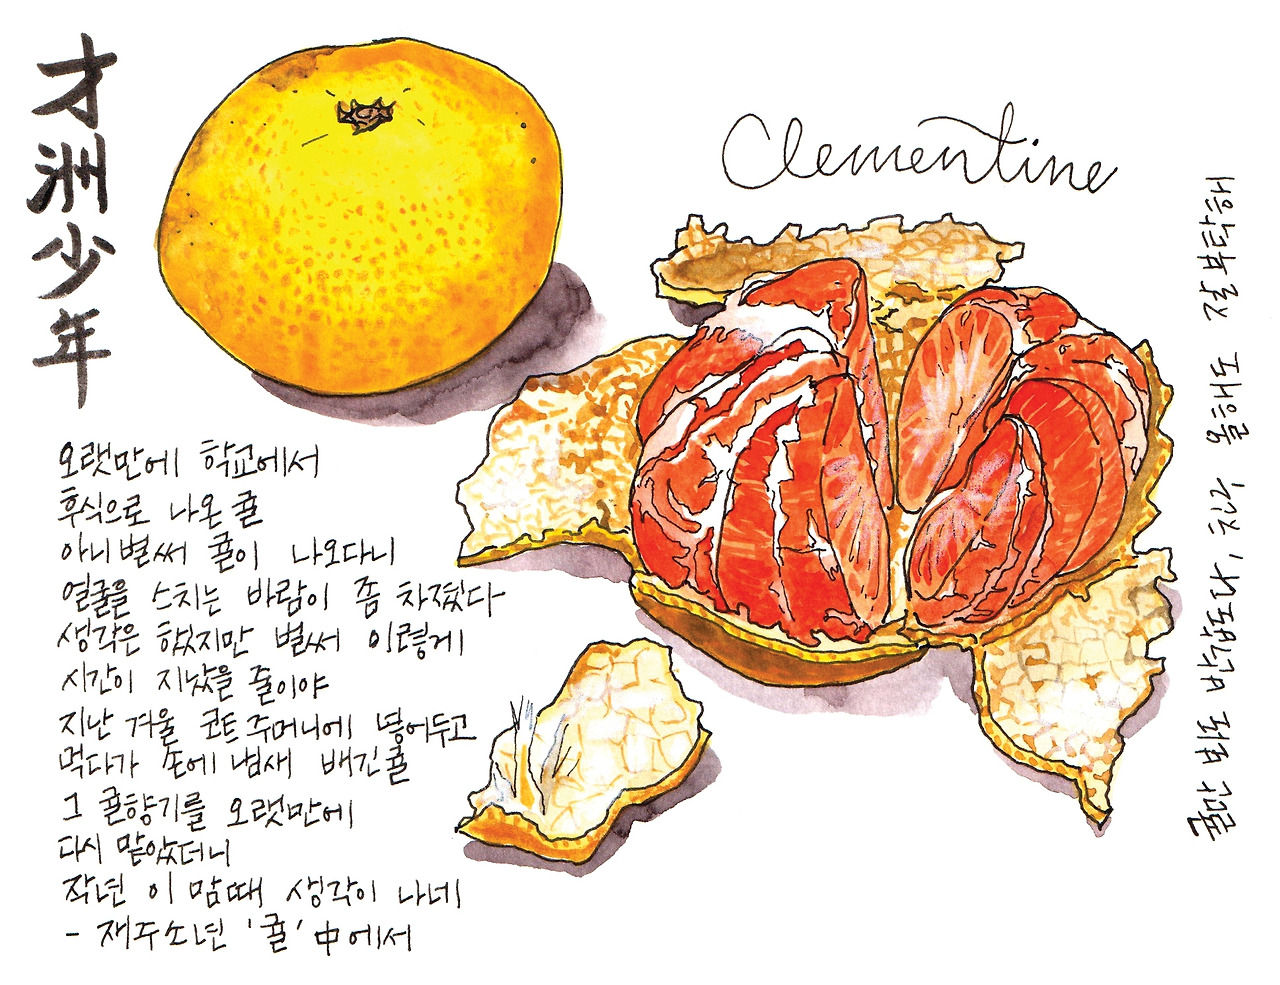 才洲少年
Clementine
오랫만에 학교에서
후식으로 나온 귤
아니 벌써 귤이 나오다니
얼굴을 스치는 바람이 좀 차졌다
생각은 했지만 벌써 이렇게
시간이 지났을 줄이야
지난 겨울 코트 주머니에 넣어두고
먹다가 손에 냄새 배긴 귤
그 귤향기를 오랫만에
다시 맡았더니
작년 이 맘때 생각이 나네
- 재주소년 '귤' 中에서